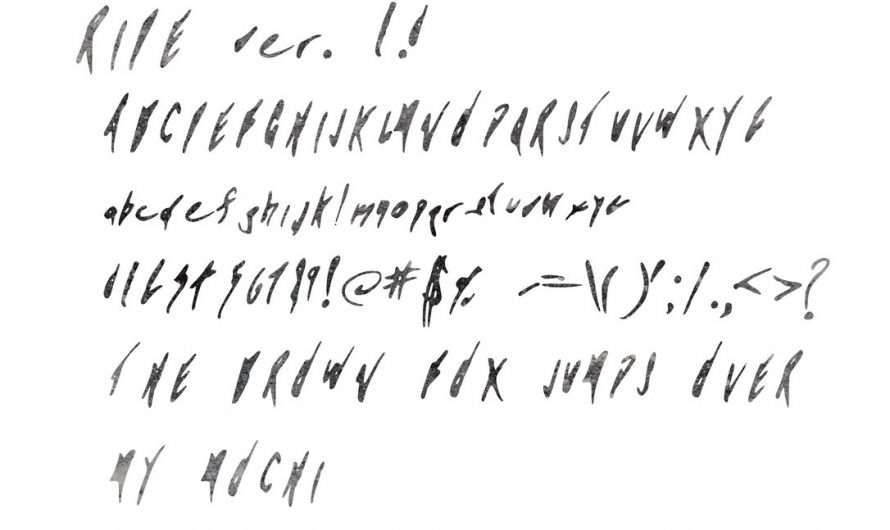 RIPE ver. 1.0
ABCDEFGHIJKLMNOPQRSTUVWXYZ
abcdefghijklmnopqrstuvwxyz
0123456789!@#$%  -=\()';:/.,<>?
THE BROWN FOX JUMPS OVER
MY MOCHI